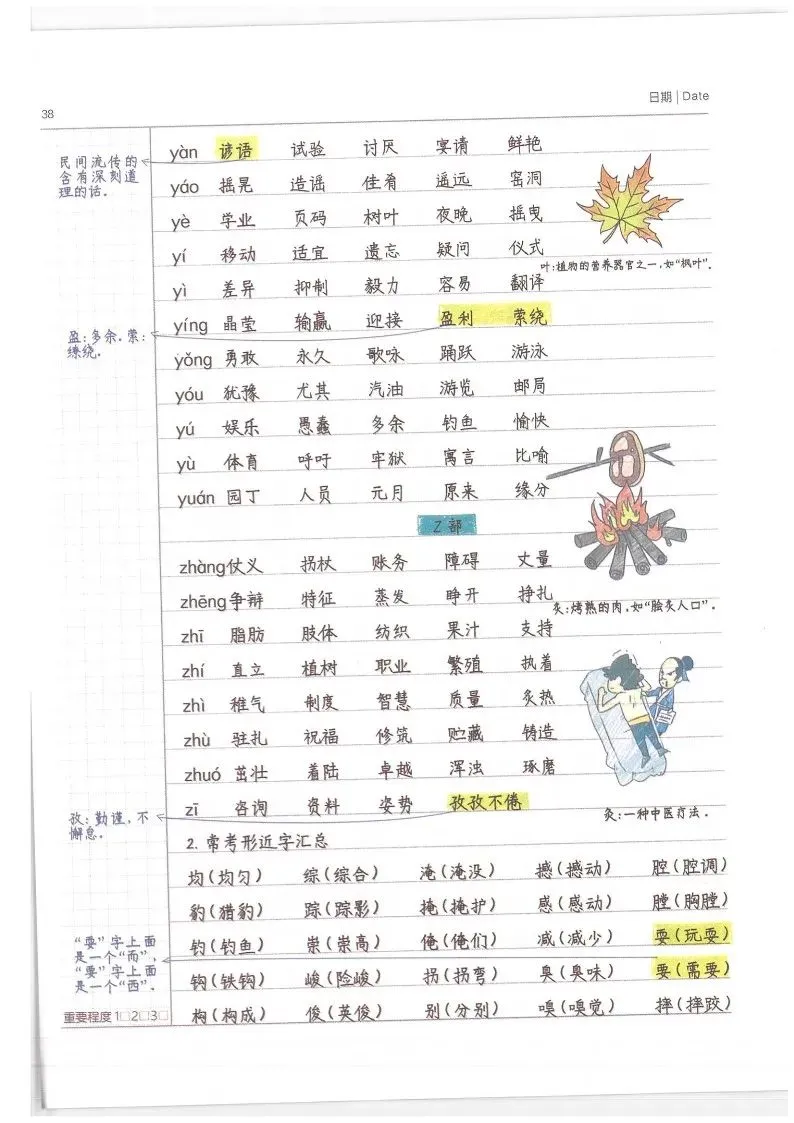 38
日期 | Date
yàn 谚语 试验 讨厌 宴请 鲜艳
民间流传的
含有深刻道
理的话.
yáo 摇晃 造谣 佳肴 遥远 窑洞
yè 学业 页码 树叶 夜晚 摇曳
yí 移动 适宜 遗忘 疑问 仪式
叶:植物的营养器官之一,如“枫叶”.
yì 差异 抑制 毅力 容易 翻译
yíng 晶莹 输赢 迎接 盈利 萦绕
盈:多余.萦:
缭绕.
yǒng 勇敢 永久 歌咏 踊跃 游泳
yóu 犹豫 尤其 汽油 游览 邮局
yú 娱乐 愚蠢 多余 钓鱼 愉快
yù 体育 呼吁 牢狱 寓言 比喻
yuán 园丁 人员 元月 原来 缘分
Z部
zhàng 仗义 拐杖 账务 障碍 丈量
zhēng 争辩 特征 蒸发 睁开 挣扎
炙:烤熟的肉,如“脍炙人口”.
zhī 脂肪 肢体 纺织 果汁 支持
zhí 直立 植树 职业 繁殖 执着
zhì 稚气 制度 智慧 质量 炙热
zhù 驻扎 祝福 修筑 贮藏 铸造
zhuó 茁壮 着陆 卓越 浑浊 琢磨
zī 咨询 资料 姿势 孜孜不倦
灸:一种中医疗法.
孜:勤谨,不
懈怠.
2. 常考形近字汇总
均(均匀) 综(综合) 淹(淹没) 撼(撼动) 腔(腔调)
豹(猎豹) 踪(踪影) 掩(掩护) 感(感动) 膛(胸膛)
钓(钓鱼) 崇(崇高) 俺(俺们) 减(减少) 耍(玩耍)
“耍”字上面
是一个“而”,
“要”字上面
是一个“西”.
钩(铁钩) 峻(险峻) 拐(拐弯) 臭(臭味) 要(需要)
构(构成) 俊(英俊) 别(分别) 嗅(嗅觉) 摔(摔跤)
重要程度 1□2□3□